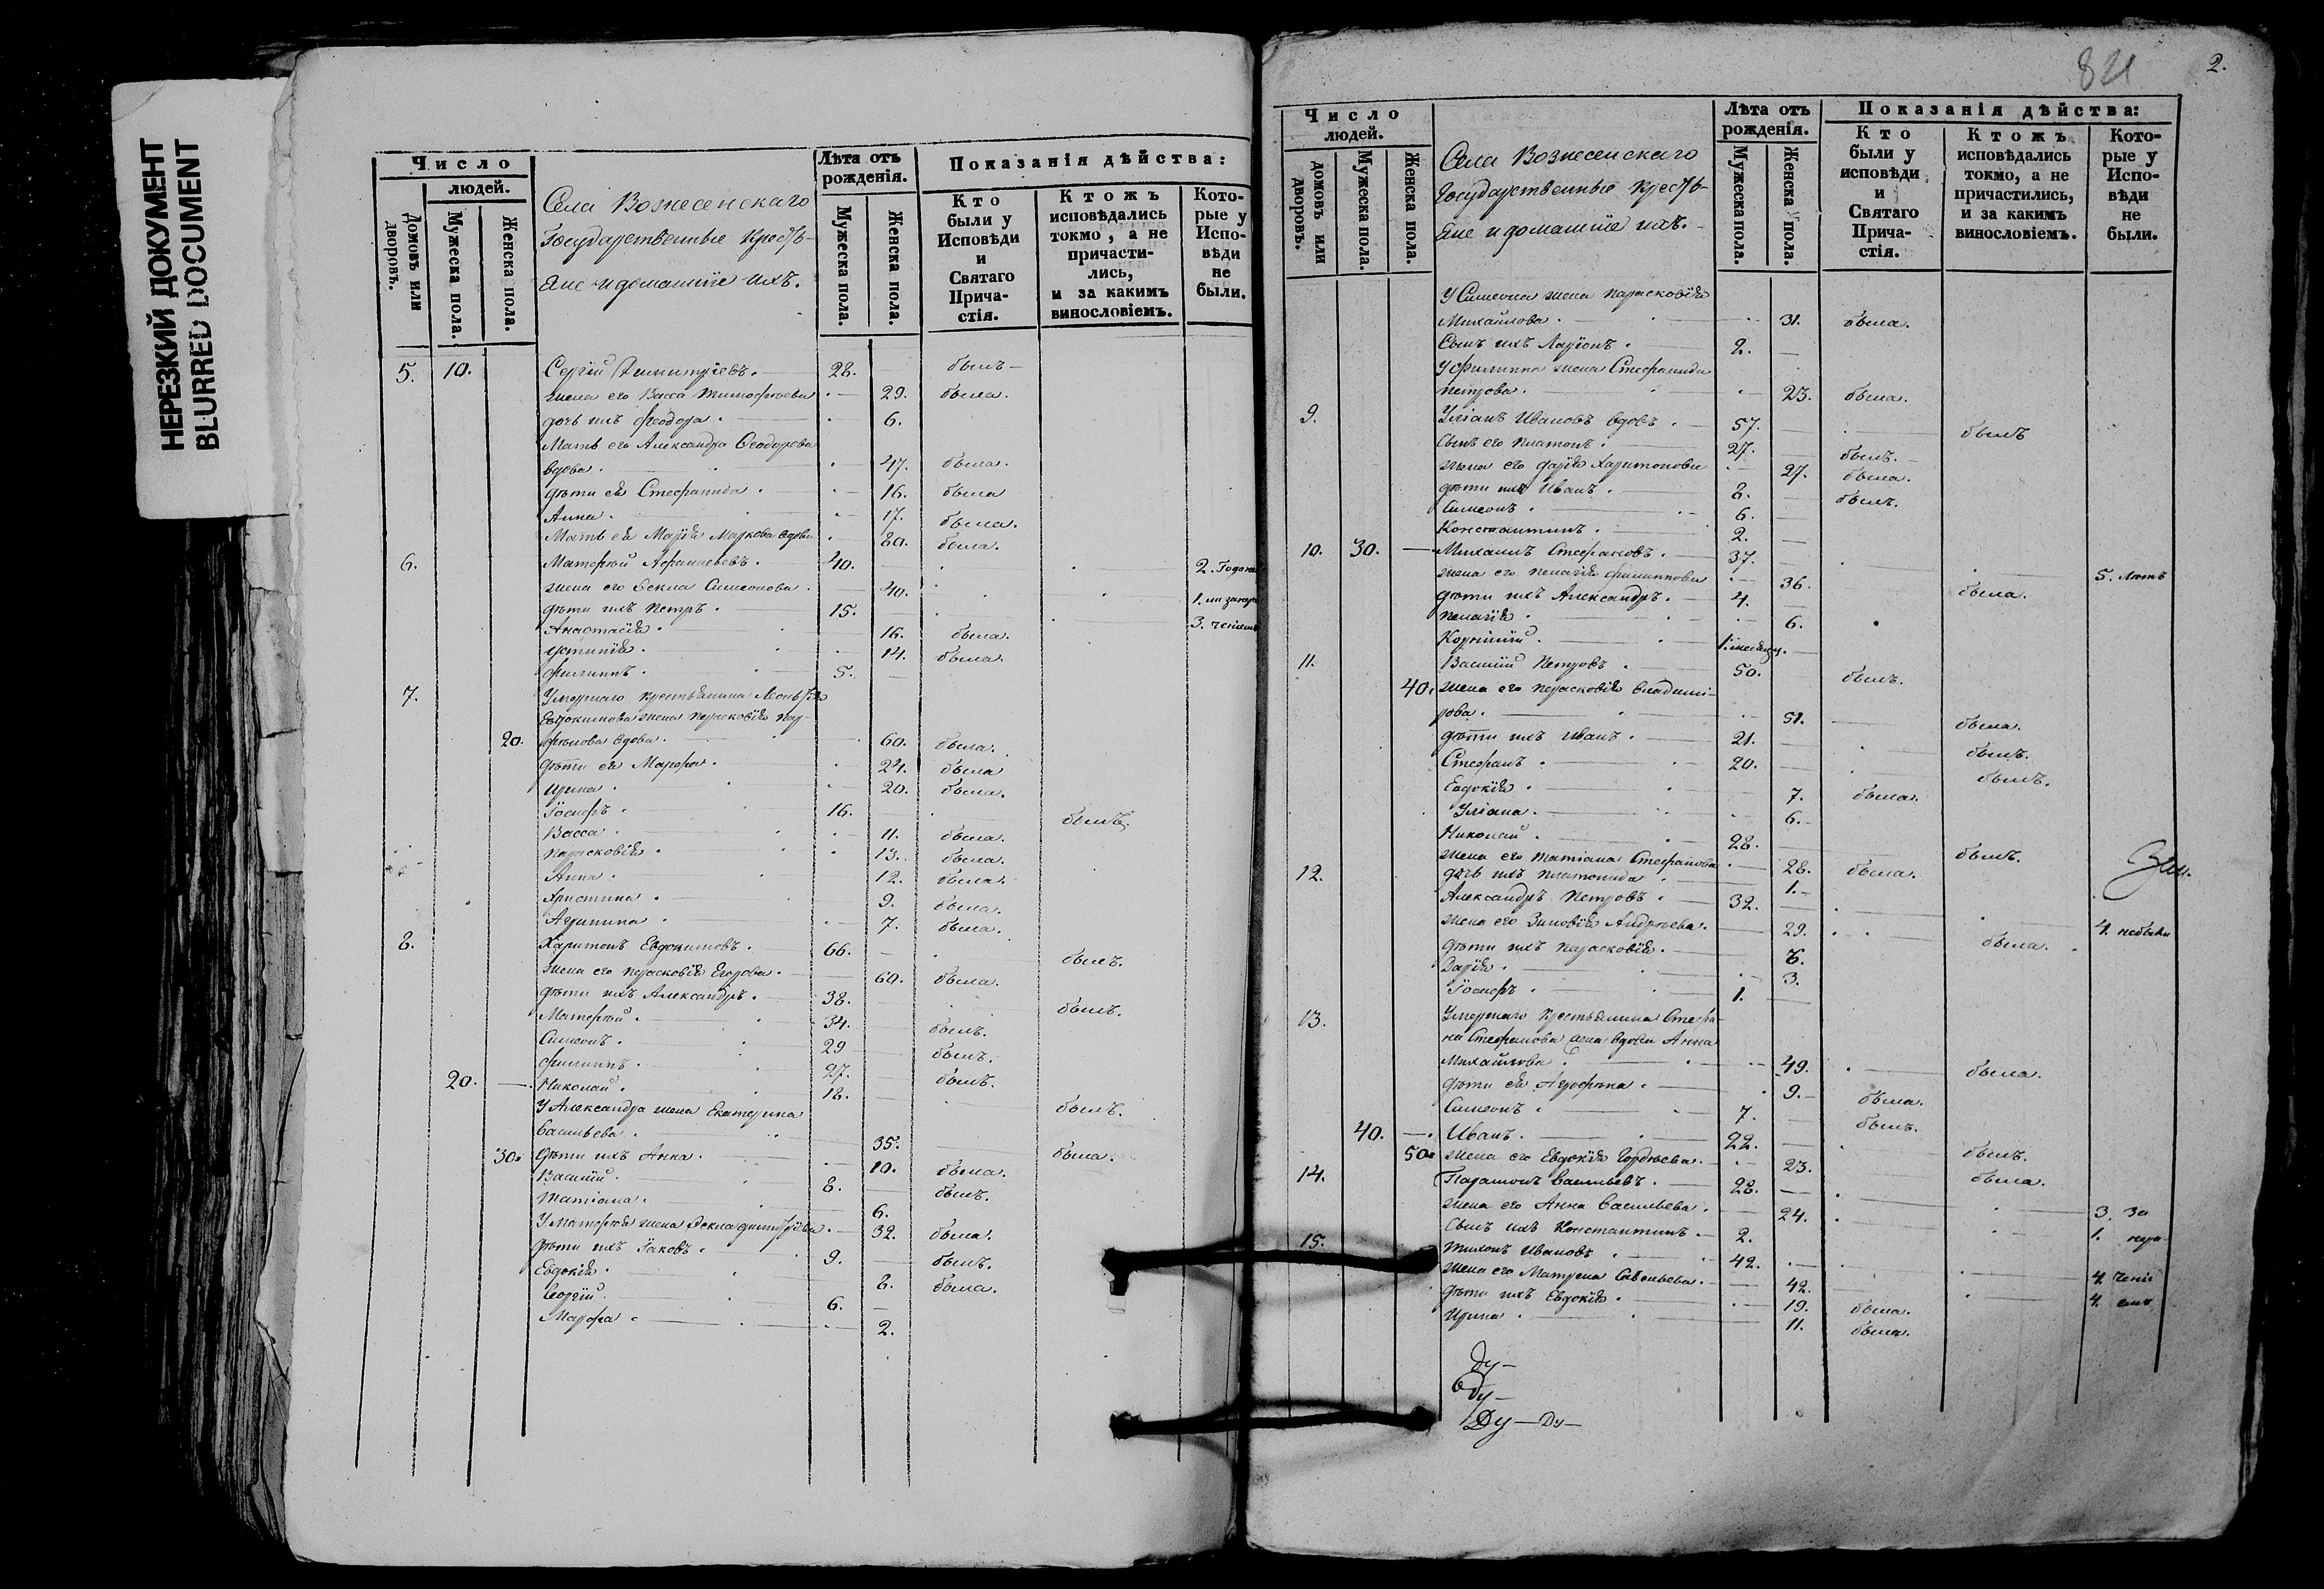 НЕРЕЗКИЙ ДОКУМЕНТ
BLURRED DOCUMENT
Число
людей.
Домовъ или дворовъ.
Мужеска пола.
Женска пола.
Села Вознесенскаго
Государственные Кресть-
яне и домашніе ихъ.
Лѣта отъ рожденія.
Мужеска пола.
Женска пола.
Показанія дѣйства:
Кто были у Исповѣди и Святаго Прича-стія.
Ктожъ исповѣдались токмо, а не причасти-лись, и за какимъ винословіемъ.
Кото-рые у Испо-вѣди не были.
5. 10. Сергій Димитріевъ. 28. былъ
жена его Васса Тимофѣева 29. была.
дочь ихъ Феодора. 6.
Мать его Александра Ѳеодорова
вдова. 47. была.
дѣти ея Стефанида. 16. была
Анна. 17. была.
Мать ея Марія Маркова вдова 80. была.
6. Матфей Афанасьевъ. 40. 2. Года
жена его Ѳекла Симеонова. 40. 1.
дѣти ихъ Петръ. 15. 3.
Анастасія. 16. была.
Устинія. 14. была.
Филиппъ. 5.
7. Умершаго крестьянина Леонтія
Евдокимова жена Парасковія Пар-
20. фенова вдова. 60. была.
дѣти ея Марфа. 24. была
Ирина. 20. была.
Іосифъ. 16. былъ.
Васса. 11. была.
Парасковія. 13. была.
Анна. 12. была.
Христина. 9. была.
Агрипина. 7. была.
8. Харитонъ Евдокимовъ. 66. былъ.
жена его Парасковія Егорова. 60. была.
дѣти ихъ Александръ. 38. былъ.
Матфей. 34. былъ.
Симеонъ. 29 былъ.
Филиппъ. 27. былъ.
20. Николай. 18. былъ.
У Александра жена Екатерина
Васильева. 35. была.
30. дѣти ихъ Анна. 10. была.
Василій. 8. былъ.
Татіана. 6.
У Матфея жена Ѳекла Димитріева. 32. была.
дѣти ихъ Іаковъ. 9. былъ.
Евдокія. 8. была.
Георгій. 6.
Марфа. 2.
821
2.
Число
людей.
домовъ или дворовъ.
Мужеска пола.
Женска пола.
Села Вознесенскаго
Государственные Кресть-
яне и домашніе ихъ.
Лѣта отъ рожденія.
Мужеска пола.
Женска пола.
Показанія дѣйства:
Кто были у исповѣди и Святаго Прича-стія.
Ктожъ исповѣдались токмо, а не причастились, и за какимъ винословіемъ.
Кото-рые у Испо-вѣди не были.
У Симеона жена Парасковія
Михайлова. 31. была.
Сынъ ихъ Ларіонъ. 2.
У Филиппа жена Стефанида
Петрова. 23. была.
9. Уліанъ Ивановъ вдовъ. 57. былъ
Сынъ его Платонъ. 27. былъ.
жена его Дарія Харитонова 27. была.
дѣти ихъ Иванъ. 8. былъ.
Симеонъ. 6.
Константинъ. 2.
10. 30. Михаилъ Стефановъ. 37. 5. лѣтъ
жена его Пелагія Филиппова 36. была.
дѣти ихъ Александръ. 4.
Пелагія. 6.
Корнилій. 1.
11. Василій Петровъ. 50. былъ.
40. жена его Парасковія Владими-
рова. 51. была.
дѣти ихъ Иванъ. 21. былъ.
Стефанъ. 20. былъ.
Евдокія. 7. была.
Уліана. 6.
Николай. 28. былъ.
жена его Татіана Стефанова 28. была.
дочь ихъ Платонида 1.
12. Александръ Петровъ. 32. 4. небыли
жена его Зиновія Андреева. 29. была.
дѣти ихъ Парасковія. 6.
Дарія. 3.
Іосифъ. 1.
13. Умершаго Крестьянина Стефа-
на Стефанова жена вдова Анна
Михайлова. 49. была.
дѣти ея Агрофена. 9. была.
Симеонъ. 7. былъ.
40. Иванъ. 22. былъ.
50. жена его Евдокія Гордеева. 23. была.
14. Парамонъ Васильевъ. 28. 3. за
жена его Анна Васильева. 24. 1.
Сынъ ихъ Константинъ. 2.
15. Тихонъ Ивановъ. 42. 4.
жена его Матрена Савельева. 42. 4.
дѣти ихъ Евдокія. 19. была.
Ирина. 11. была.